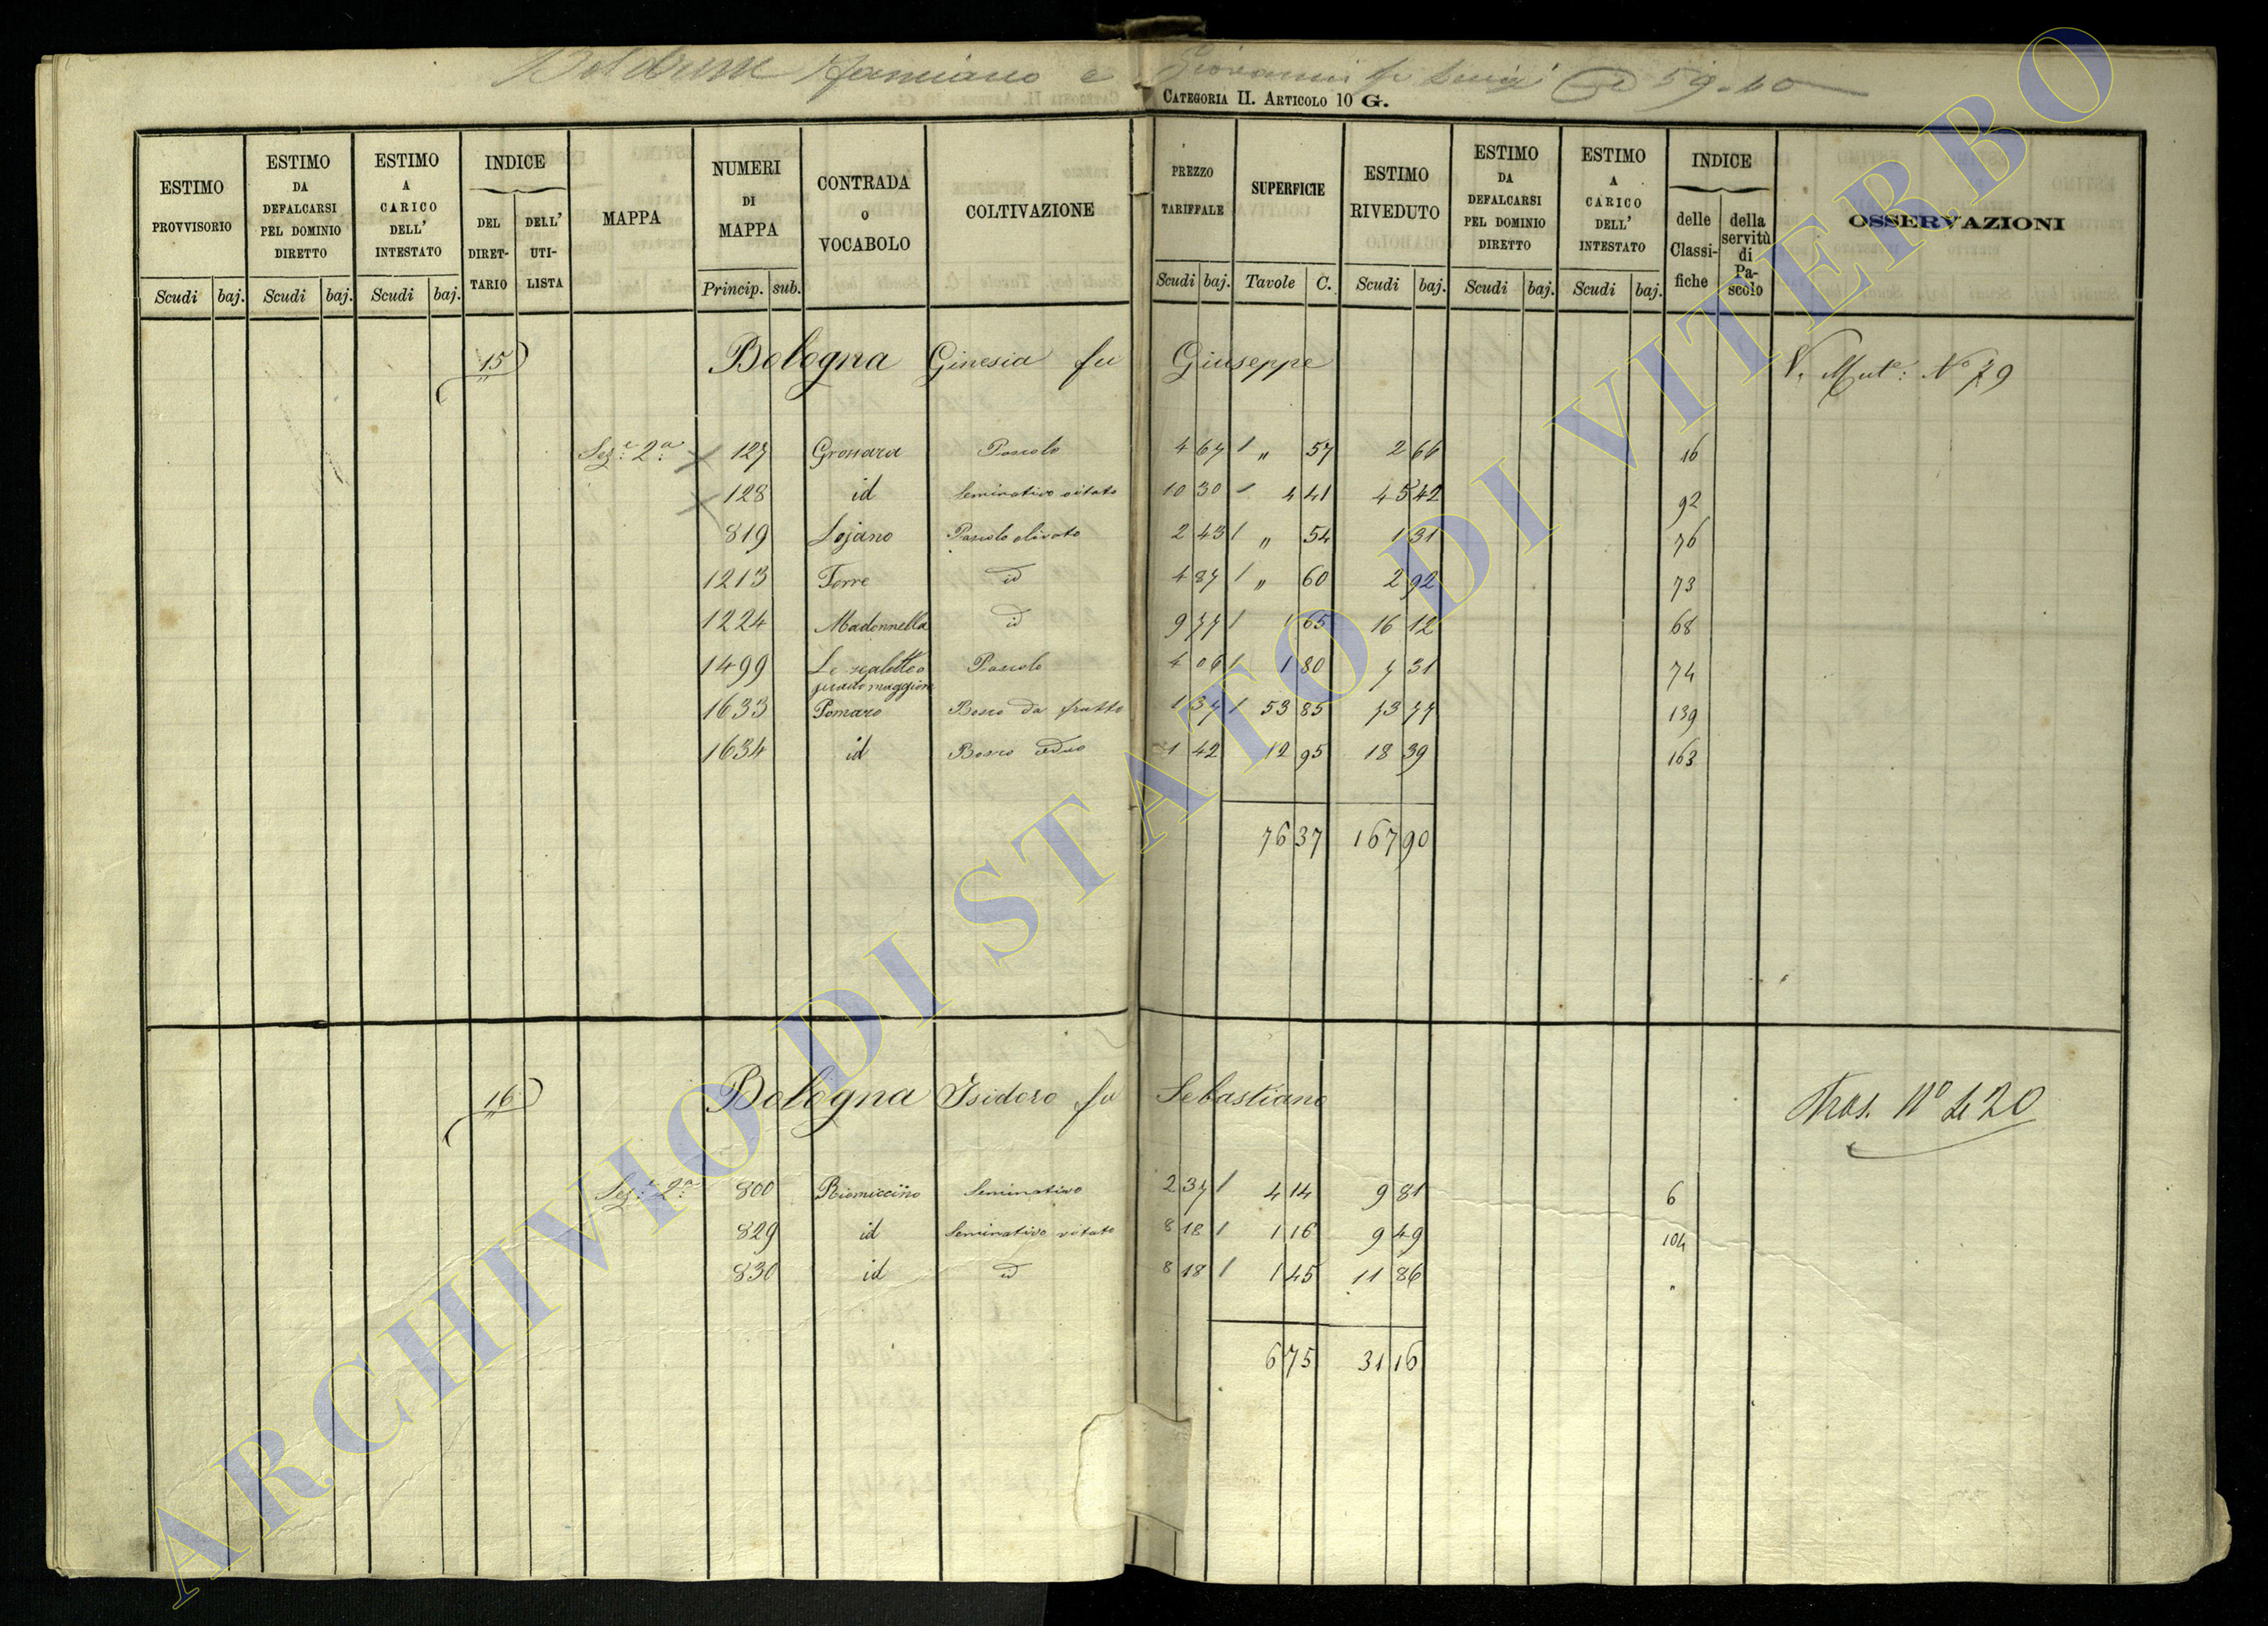 Giovanni fu Luigi 59.10
CATEGORIA II. ARTICOLO 10 G.
ESTIMO PROVVISORIO Scudi baj.
ESTIMO DA DEFALCARSI PEL DOMINIO DIRETTO Scudi baj.
ESTIMO A CARICO DELL' INTESTATO Scudi baj.
INDICE DEL DIRET- TARIO DELL' UTI- LISTA
MAPPA
NUMERI DI MAPPA Princip. sub.
CONTRADA O VOCABOLO
COLTIVAZIONE
PREZZO TARIFFALE Scudi baj.
SUPERFICIE Tavole C.
ESTIMO RIVEDUTO Scudi baj.
ESTIMO DA DEFALCARSI PEL DOMINIO DIRETTO Scudi baj.
ESTIMO A CARICO DELL' INTESTATO Scudi baj.
INDICE delle Classi- fiche della servitù di Pa- scolo
OSSERVAZIONI
15 Bologna Ginesia fu Giuseppe V. Mut.e: N.o 79
Sez.e 2.a 127 Grossara Pascolo 4 67 / " 57 2 66 16
128 id Seminativo vitato 10 30 / 4 41 45 42 92
819 Lojano Pascolo olivato 2 43 / " 54 1 31 76
1213 Torre id 4 87 / " 60 2 92 73
1224 Madonnella id 9 77 / 1 65 16 12 68
1499 Le scalette o Pascolo 4 06 / 1 80 7 31 74
prato maggiore
1633 Pomaro Bosco da frutto 1 37 / 53 85 73 77 139
1634 id Bosco ceduo 1 42 12 95 18 39 163
76 37 167 90
16 Bologna Isidoro fu Sebastiano Tras. N.o 420
Sez.e 2.a 800 Riomiccino Seminativo 2 37 / 4 14 9 81 6
829 id Seminativo vitato 8 18 / 1 16 9 49 104
830 id id 8 18 / 1 45 11 86 "
6 75 31 16
ARCHIVIO DI STATO DI VITERBO